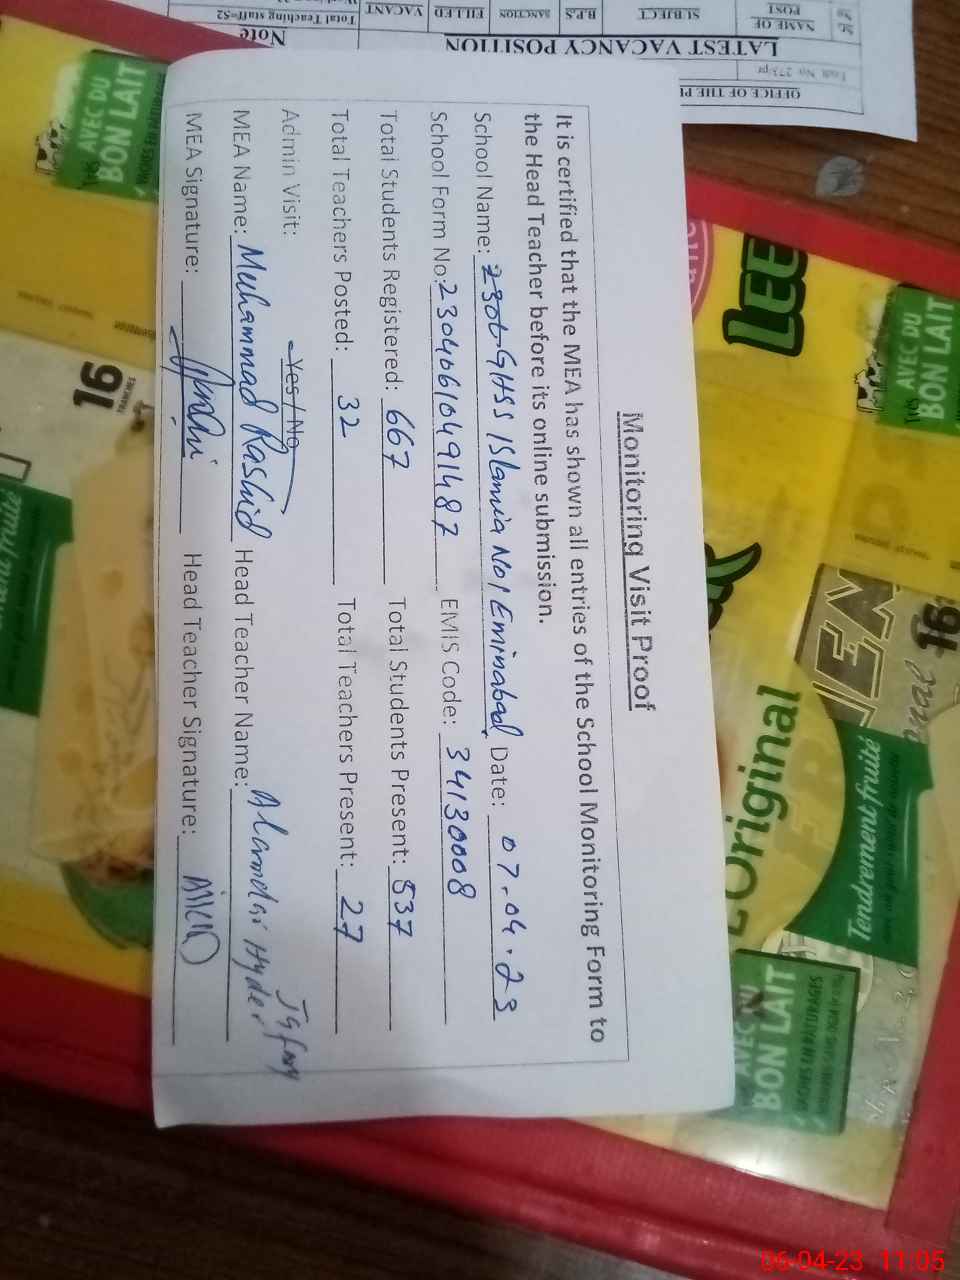 Monitoring Visit Proof
It is certified that the MEA has shown all entries of the School Monitoring Form to
the Head Teacher before its online submission.
School Name: GHSS Islamia No 1 Eminabad Date: 07.04.23
School Form No: 23040610491487 EMIS Code: 34130008
Total Students Registered: 667 Total Students Present: 537
Total Teachers Posted: 32 Total Teachers Present: 27
Admin Visit: Yes / No
MEA Name: Muhammad Rashid Head Teacher Name: Alamdar Hyder Jafary
MEA Signature: Head Teacher Signature:
OFFICE OF THE
LATEST VACANCY POSITION
Note
NAME OF POST
SUBJECT
B.P.S
SANCTION
FILLED
VACANT
Total Teaching staff=52
AVEC DU
BON LAIT
16
TRANCHES
LEE
AVEC DU
BON LAIT
16
L'Original
Tendrement fruité
AVEC DU
BON LAIT
06-04-23 11:05